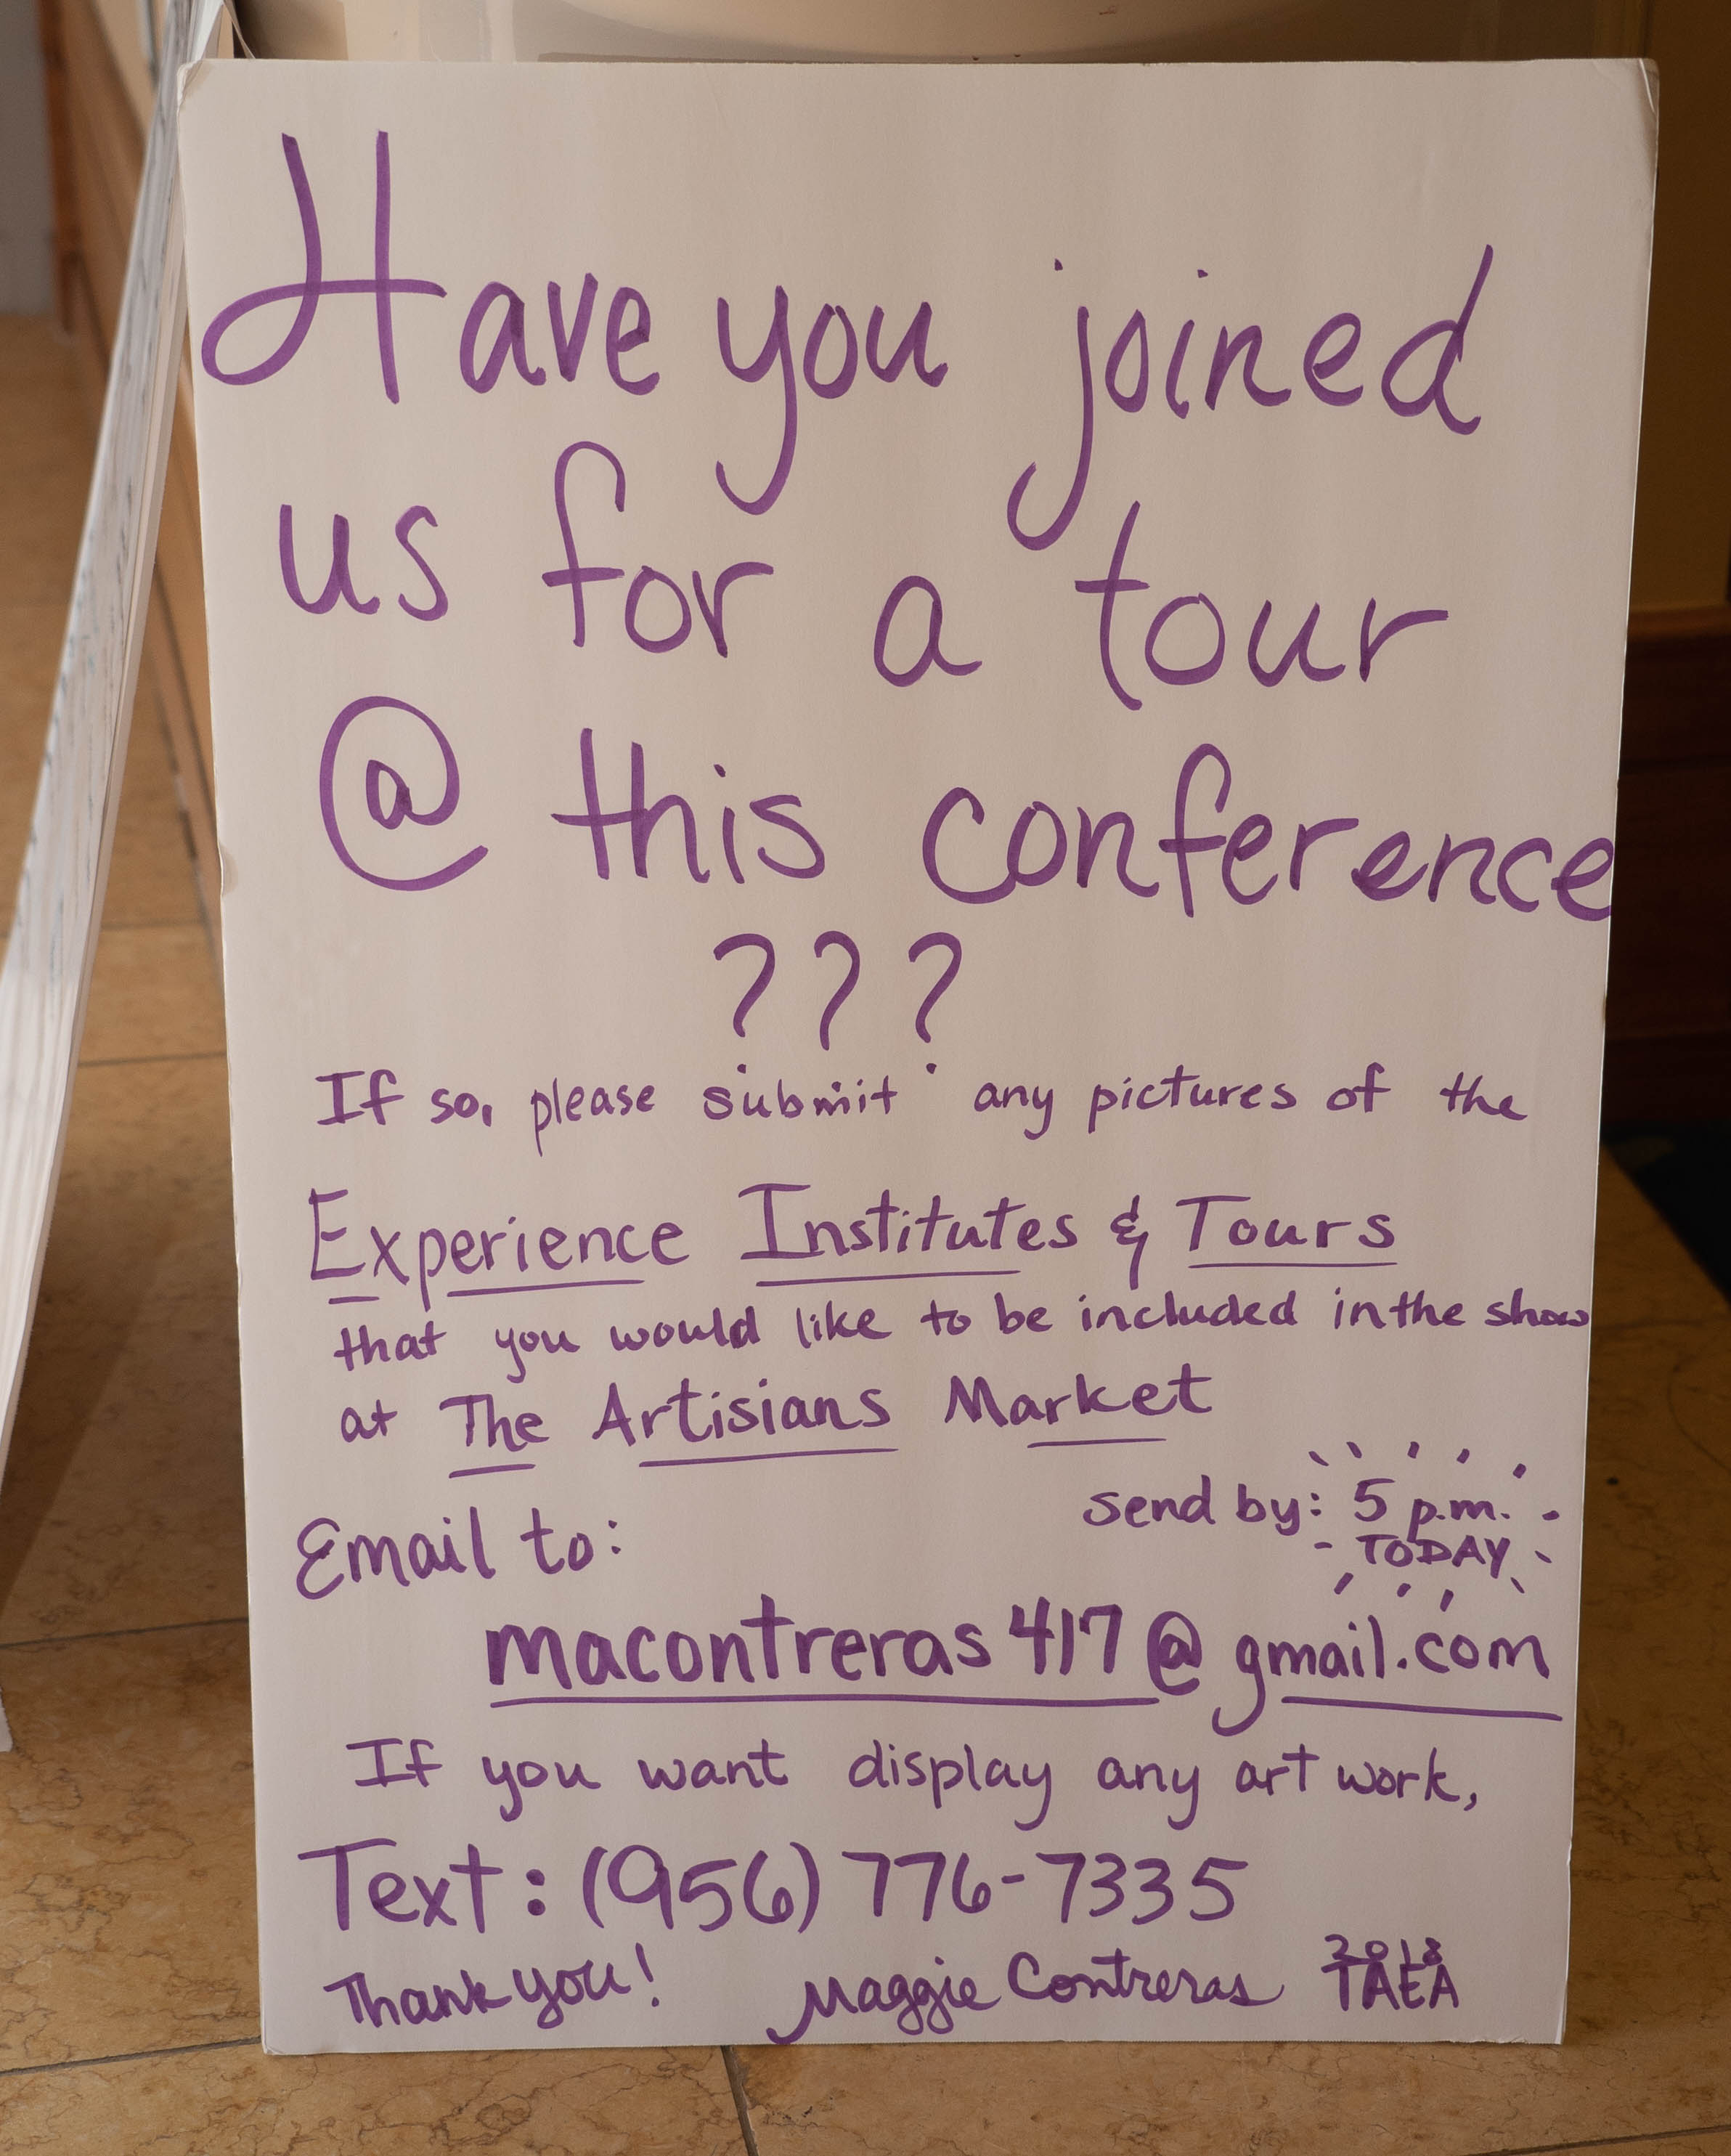 Have you joined
us for a tour
@ this conference
???
If so, please submit any pictures of the
Experience Institutes & Tours
that you would like to be included in the show
at The Artisians Market
send by: 5 p.m.
TODAY
Email to:
macontreras417@gmail.com
If you want display any art work,
Text: (956) 776-7335
Thank you! Maggie Contreras 2018
TAEA